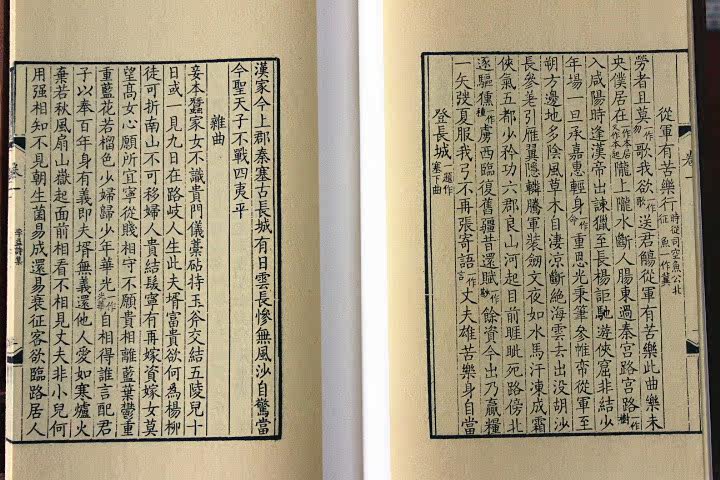 從軍有苦樂行 時從司空魚公北征 魚一作冀
勞者且莫一作勿歌我欲一作歌送君觴從軍有苦樂此曲樂未
央僕居在一作本居一作本起隴上隴水斷人腸東過秦宮路宮路一作樹
入咸陽時逢漢帝出諫獵至長楊詎馳遊俠窟非結少
年場一旦承嘉惠輕身一作命重恩光秉筆參帷帟從軍至
朔方邊地多陰風草木自淒涼斷絕海雲去出没胡沙
長參差引雁翼隱轔騰軍裝劍文夜如水馬汗凍成霜
俠氣五都少矜功六郡良山河起目前睚眦死路傍北
逐驅獯一作種虜西臨復舊疆昔還賦一作餘資今出乃贏糧
一矢弢夏服我弓不再張寄語一作言丈夫雄苦樂身自當
登長城 題一作塞下曲
卷一
漢家今上郡秦塞古長城有日雲長慘無風沙自驚當
今聖天子不戰四夷平
雜曲
妾本蠶家女不識貴門儀藁砧持玉斧交結五陵兒十
日或一見九日在路歧人生此夫壻富貴欲何為楊柳
徒可折南山不可移婦人貴結髮寧有再嫁資嫁女莫
望高女心願所宜寧從賤相守不願貴相離藍葉鬱重
重藍花若榴色少婦歸少年華光一作光華自相得誰言配君
子以奉百年身有義即夫壻無義還他人愛如寒爐火
棄若秋風扇山嶽起面前相看不相見丈夫非小兒何
用强相知不見朝生菌易成還易衰征客欲臨路居人
卷一
李益詩集